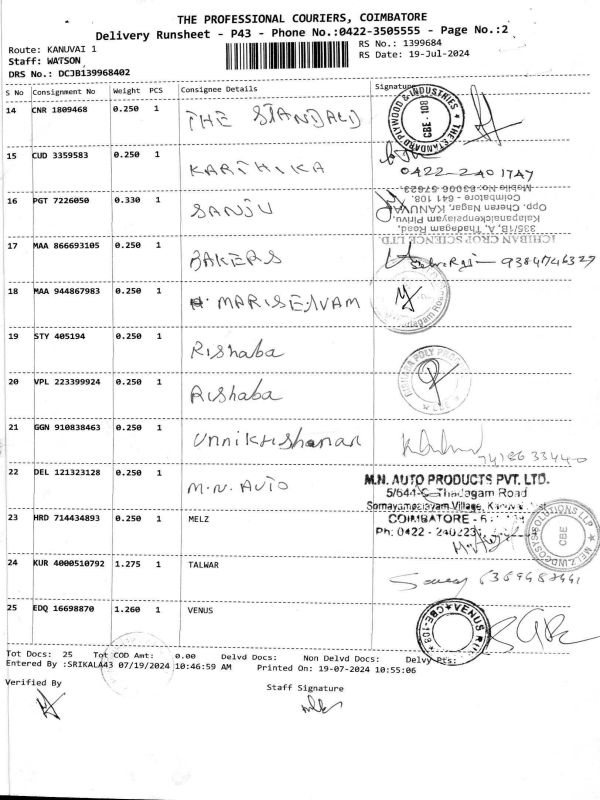 THE PROFESSIONAL COURIERS, COIMBATORE
Delivery Runsheet - P43 - Phone No.:0422-3505555 - Page No.:2
Route: KANUVAI 1
RS No.: 1399684
Staff: WATSON
RS Date: 19-Jul-2024
DRS No.: DCJB139968402
S No Consignment No Weight PCS Consignee Details Signature
14 CNR 1809468 0.250 1 THE STANDALD
THE STANDARD PLYWOOD & INDUSTRIES CBE - 108
15 CUD 3359583 0.250 1 KARTHIKA
0422-2401747
16 PGT 7226050 0.330 1 SANJU
ICHIBAN CROP SCIENCE LTD.
335/1B, A, Thadagam Road,
Kalapanaickenpalayam Pirivu,
Opp. Cheran Nagar, KANUVAI
Coimbatore - 641 108.
17 MAA 866693105 0.250 1 BAKERS
18 MAA 944867983 0.250 1 MARISELVAM
19 STY 405194 0.250 1 Rishaba
20 VPL 223399924 0.250 1 Rishaba
21 GGN 910838463 0.250 1 Unnikrishanan
22 DEL 121323128 0.250 1 M.N. AUTO
M.N. AUTO PRODUCTS PVT. LTD.
5/644-C, Thadagam Road
Somayampalayam Village,
COIMBATORE -
Ph: 0422 -
23 HRD 714434893 0.250 1 MELZ
CBE
24 KUR 4000510792 1.275 1 TALWAR
25 EDQ 16698870 1.260 1 VENUS
VENUS CBE-108
Tot Docs: 25 Tot COD Amt: 0.00 Delvd Docs: Non Delvd Docs: Delvy Pts:
Entered By :SRIKALA43 07/19/2024 10:46:59 AM Printed On: 19-07-2024 10:55:06
Verified By
Staff Signature